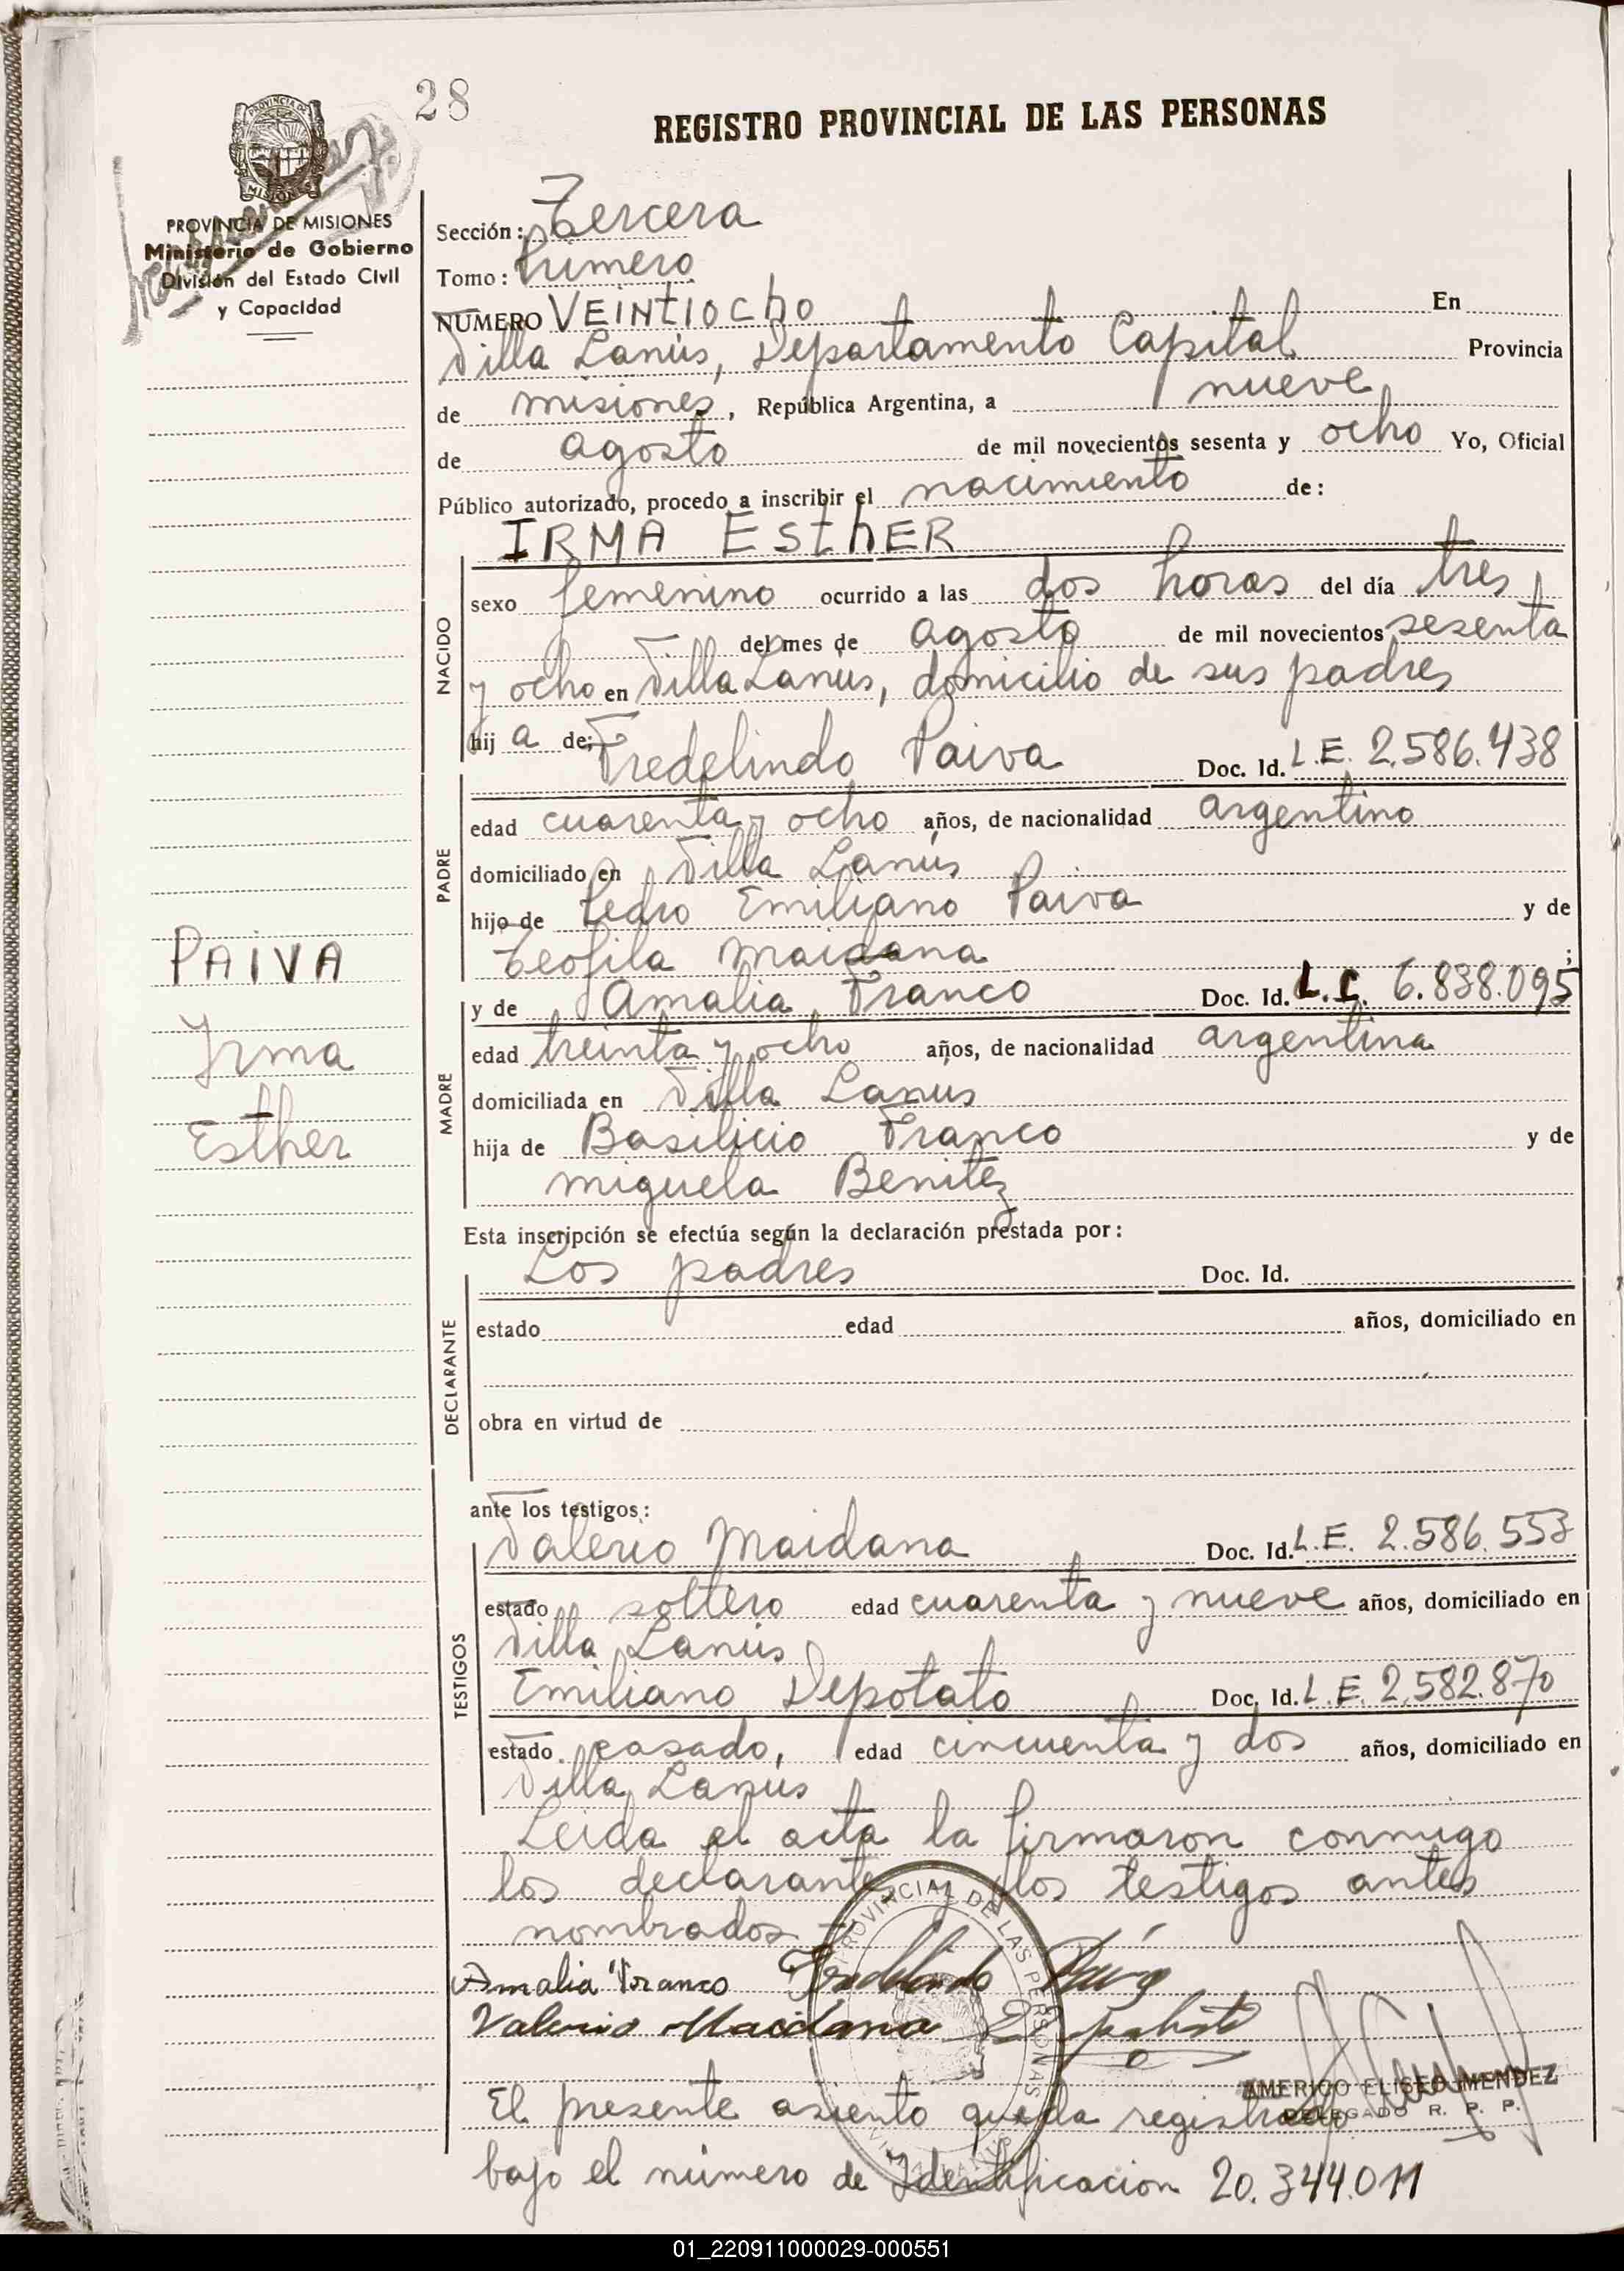 28
REGISTRO PROVINCIAL DE LAS PERSONAS
PROVINCIA DE MISIONES
Ministerio de Gobierno
División del Estado Civil
y Capacidad
Sección: Tercera
Tomo: Primero
NUMERO VEINTIOCHO En
Villa Lanús, Departamento Capital Provincia
de Misiones, República Argentina, a nueve
de agosto de mil novecientos sesenta y ocho Yo, Oficial
Público autorizado, procedo a inscribir el nacimiento de:
IRMA ESTHER
NACIDO
sexo femenino ocurrido a las dos horas del día tres
del mes de agosto de mil novecientos sesenta
y ocho en Villa Lanus, domicilio de sus padres
hij a de: Fredelindo Paiva Doc. Id. L.E. 2.586.438
PADRE
edad cuarenta y ocho años, de nacionalidad argentino
domiciliado en Villa Lanús
hijo de Pedro Emiliano Paiva y de
Teofila Maidana ;
y de Amalia Franco Doc. Id. L.C. 6.838.095
MADRE
edad treinta y ocho años, de nacionalidad argentina
domiciliada en Villa Lanus
hija de Basilicio Franco y de
Miguela Benitez
PAIVA
Irma
Esther
Esta inscripción se efectúa según la declaración prestada por:
Los padres Doc. Id.
DECLARANTE
estado edad años, domiciliado en
obra en virtud de
ante los testigos:
TESTIGOS
Valerio Maidana Doc. Id. L.E. 2.586.553
estado soltero edad cuarenta y nueve años, domiciliado en
Villa Lanús
Emiliano Depotato Doc. Id. L.E. 2.582.870
estado casado, edad cincuenta y dos años, domiciliado en
Villa Lanús
Leida el acta la firmaron conmigo
los declarantes y los testigos antes
nombrados
Amalia Franco Fredelindo Paiva
Valerio Maidana
PROVINCIAL DE LAS PERSONAS
AMERICO ELISEO MENDEZ
DELEGADO R. P. P.
El presente asiento queda registrado
bajo el número de Identificacion 20.344.011
01_220911000029-000551